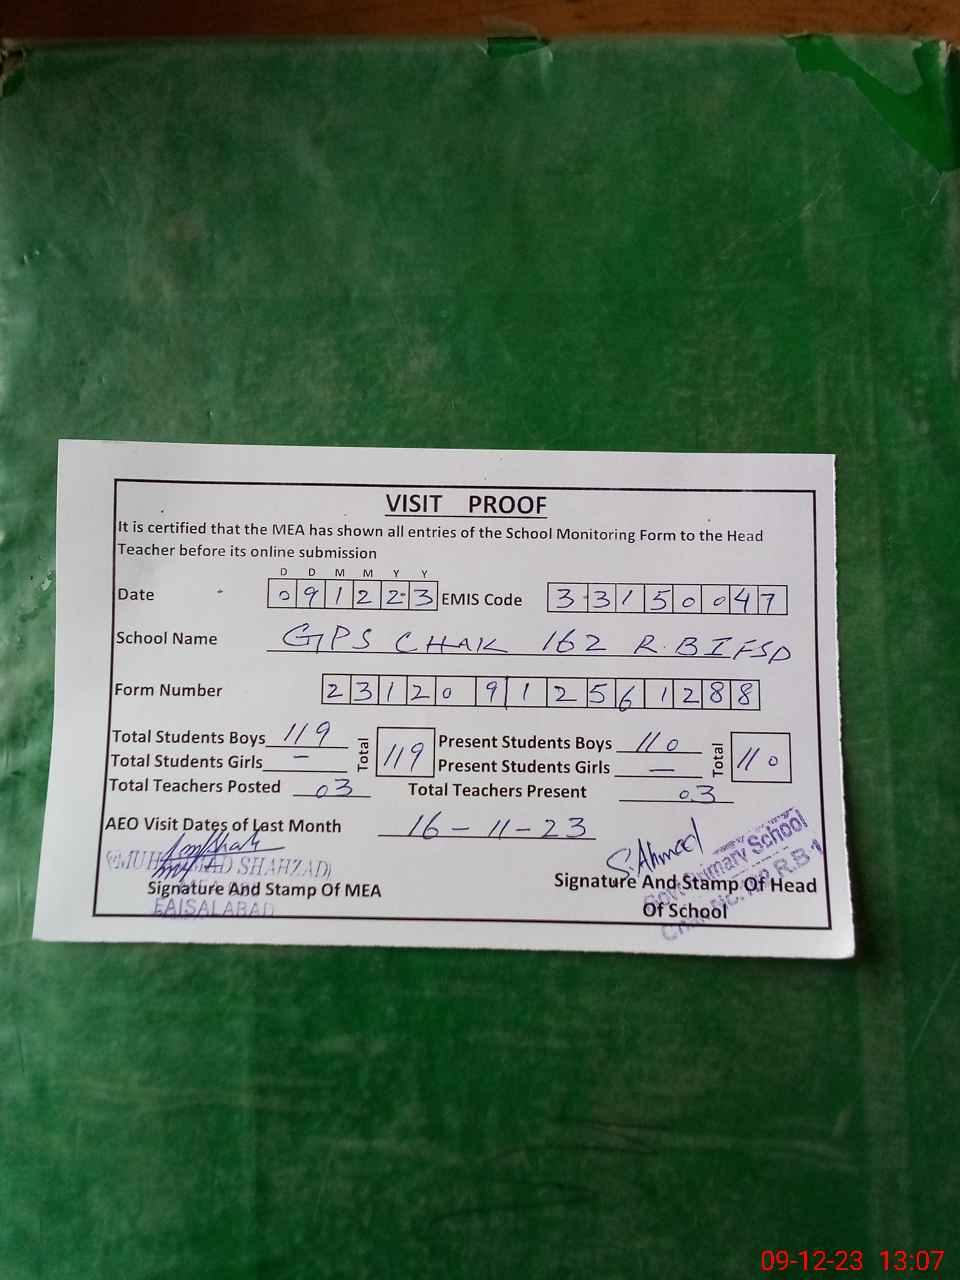 VISIT PROOF
It is certified that the MEA has shown all entries of the School Monitoring Form to the Head
Teacher before its online submission
D D M M Y Y
Date 0 9 1 2 2 3 EMIS Code 3 3 1 5 0 0 4 7
School Name GPS CHAK 162 R.B I FSD
Form Number 2 3 1 2 0 9 1 2 5 6 1 2 8 8
Total Students Boys 119 Total 119 Present Students Boys 110 Total 110
Total Students Girls - Present Students Girls -
Total Teachers Posted 03 Total Teachers Present 03
AEO Visit Dates of Last Month 16-11-23
S.Ahmad
(MUHAMMAD SHAHZAD) Govt Primary School
Signature And Stamp Of MEA Signature And Stamp Of Head
Of School
FAISALABAD
09-12-23 13:07